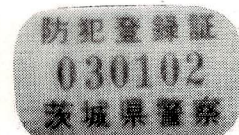 防犯登録証
030102
茨城県警察